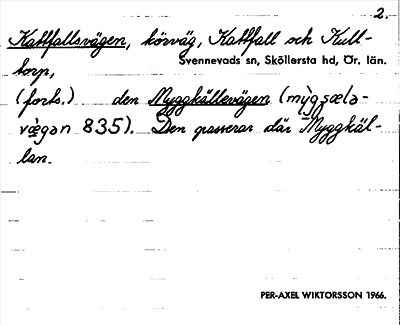 2.
Kattfallsvägen, körväg, Kattfall och Kull-
Svennevads sn, Sköllersta hd, Ör. län.
torp,
(forts.) den Myggkällevägen (mỳgçælə-
væ̀gən 835). Den passerar där Myggkäl-
lan.
PER-AXEL WIKTORSSON 1966.